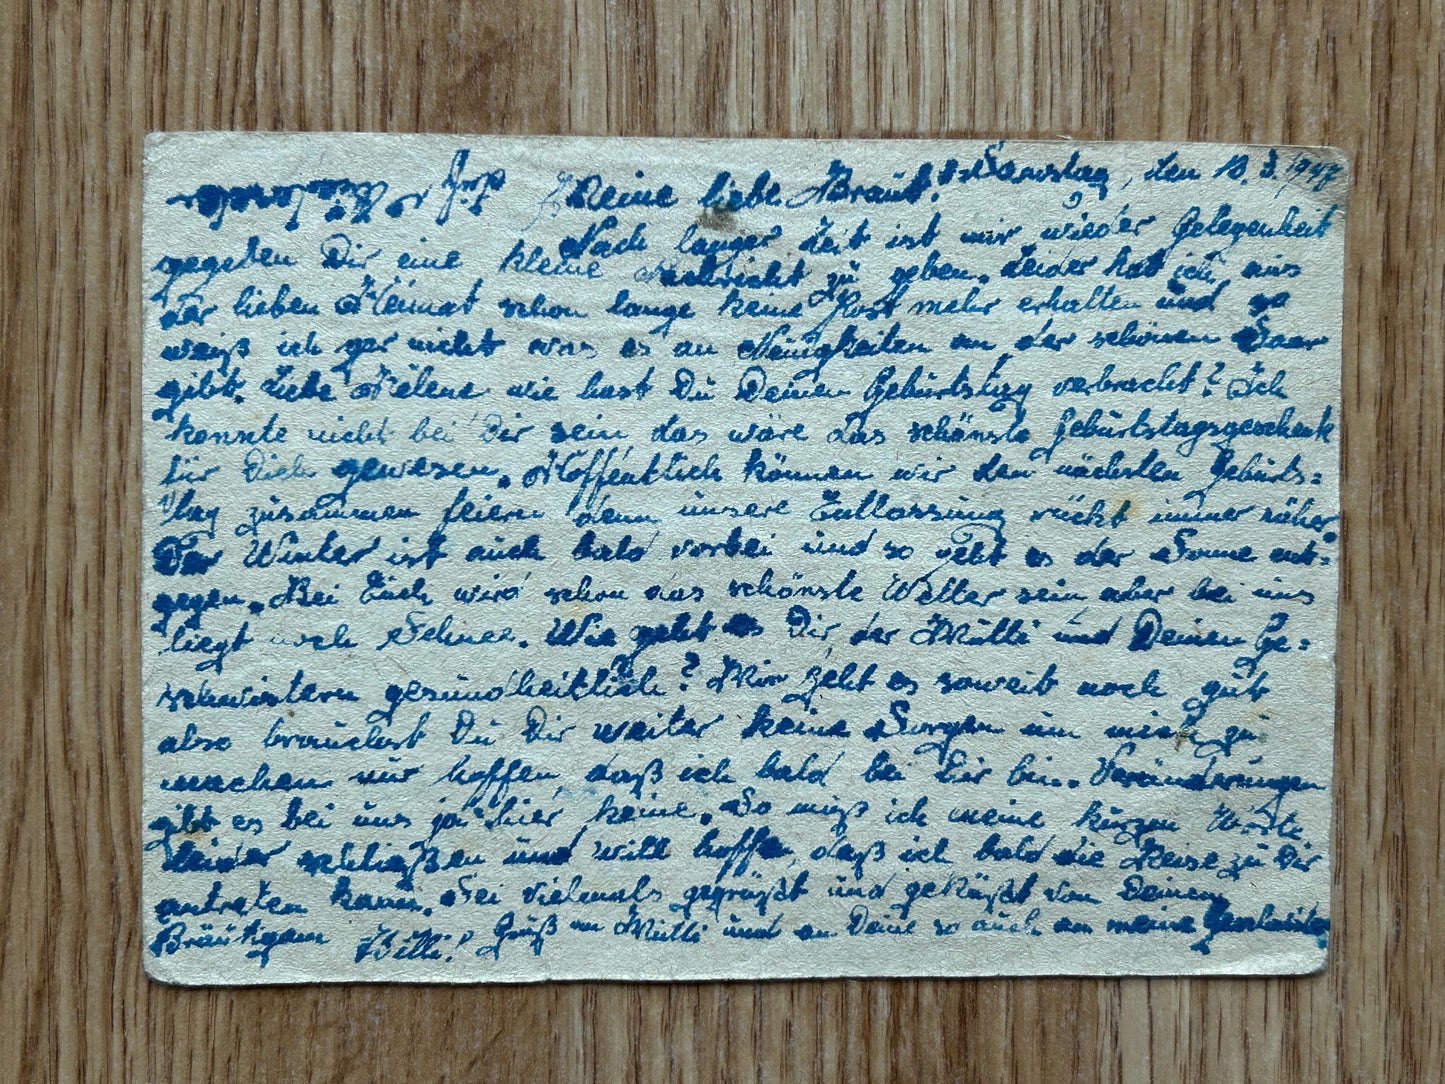 Meine liebe Braut! Samstag, den 1947
Nach langer Zeit ist mir wieder Gelegenheit
gegeben Dir eine kleine Nachricht zu geben. Leider hab ich aus
der lieben Heimat schon lange keine Post mehr erhalten und so
weiß ich gar nicht was es an Neuigkeiten an der schönen Saar
gibt. Liebe Helene wie hast Du Deinen Geburtstag verbracht? Ich
konnte nicht bei Dir sein, das wäre das schönste Geburtstagsgeschenk
für Dich gewesen. Hoffentlich können wir den nächsten Geburts=
tag zusammen feiern denn unsere Entlassung rückt immer näher
Der Winter ist auch bald vorbei und so geht es der Sonne ent=
gegen. Bei Euch wird schon das schönste Wetter sein aber bei uns
liegt noch Schnee. Wie geht es Dir, der Mutti und Deinen Ge=
schwistern gesundheitlich? Mir geht es soweit noch gut
also brauchst Du Dir weiter keine Sorgen um mich zu
machen nur hoffen, daß ich bald bei Dir bin. Veränderungen
gibt es bei uns ja hier keine. So muß ich meine kurzen Worte
leider schließen und will hoffen, daß ich bald die Reise zu Dir
antreten kann. Sei vielmals gegrüßt und geküßt von Deinem
Bräutigam Willi! Gruß an Mutti und an Deine so auch an meine